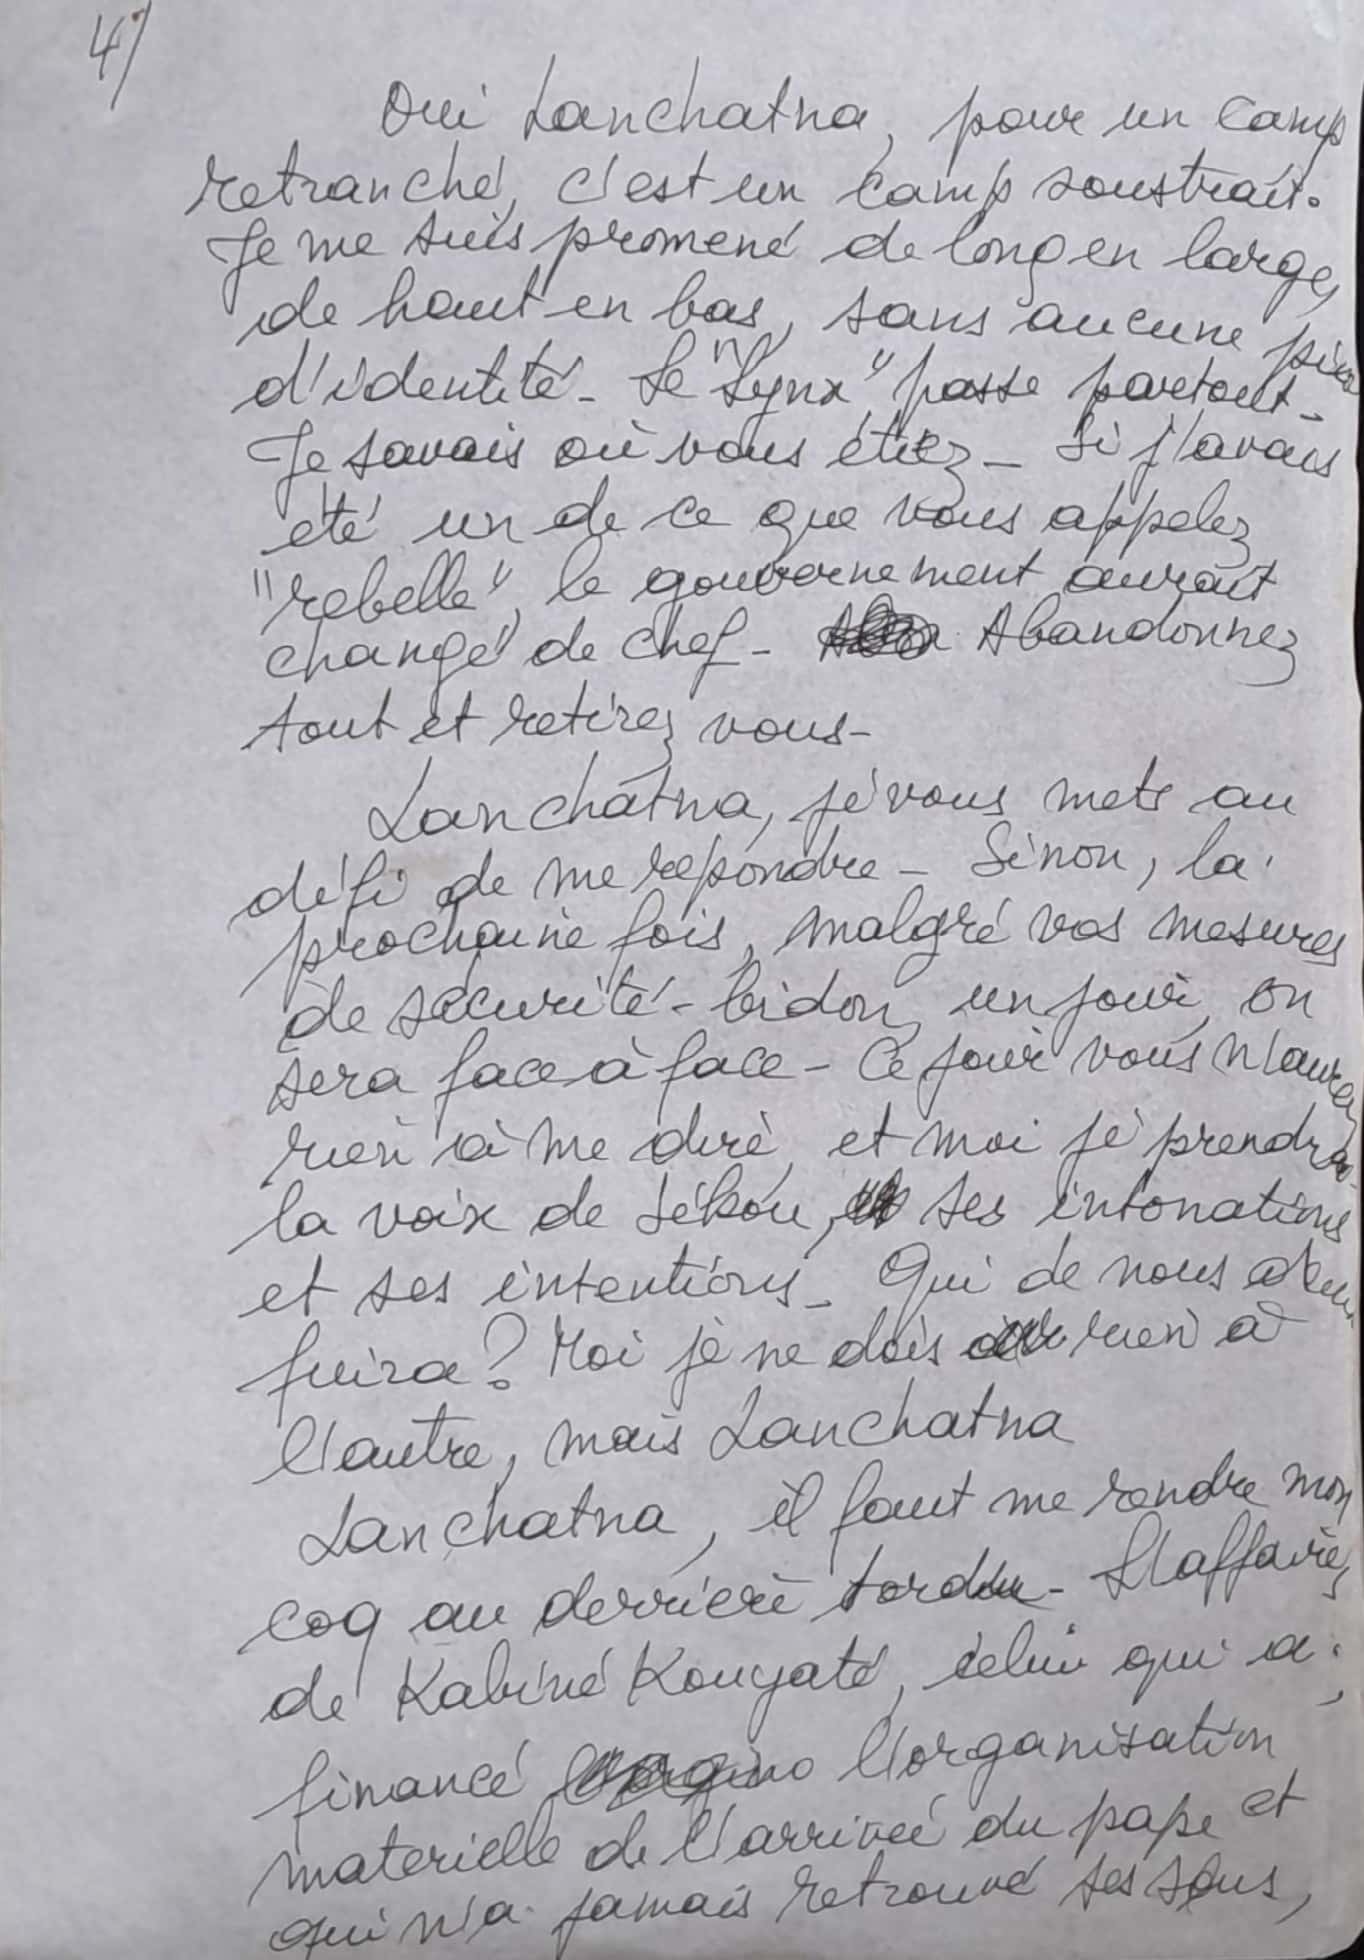 4/
Oui Lanchatna, pour un camp
retranché, c'est un camp soustrait.
Je me suis promené de long en large,
de haut en bas, sans aucune pièce
d'identité - Le "Lynx" passe partout -
Je savais où vous étiez - Si j'avais
été un de ce que vous appelez
"rebelle", le gouvernement aurait
changé de chef - Abandonnez
tout et retirez vous -
Lanchatna, je vous mets au
défi de me repondre - Sinon, la
prochaine fois, malgré vos mesures
de sécurité - bidon, un jour, on
sera face à face - Ce jour vous n'aurez
rien à me dire, et moi je prendrai
la voix de Sékou, ses intonations
et ses intentions - Qui de nous deux
fuira? Moi je ne dois rien à
l'autre, mais Lanchatna
Lanchatna, il faut me rendre mon
coq au derrière tordu - L'affaire,
de Kabiné Kouyaté, celui qui a
financé l'organisation
materielle de l'arrivée du pape et
qui n'a jamais retrouvé ses sous,